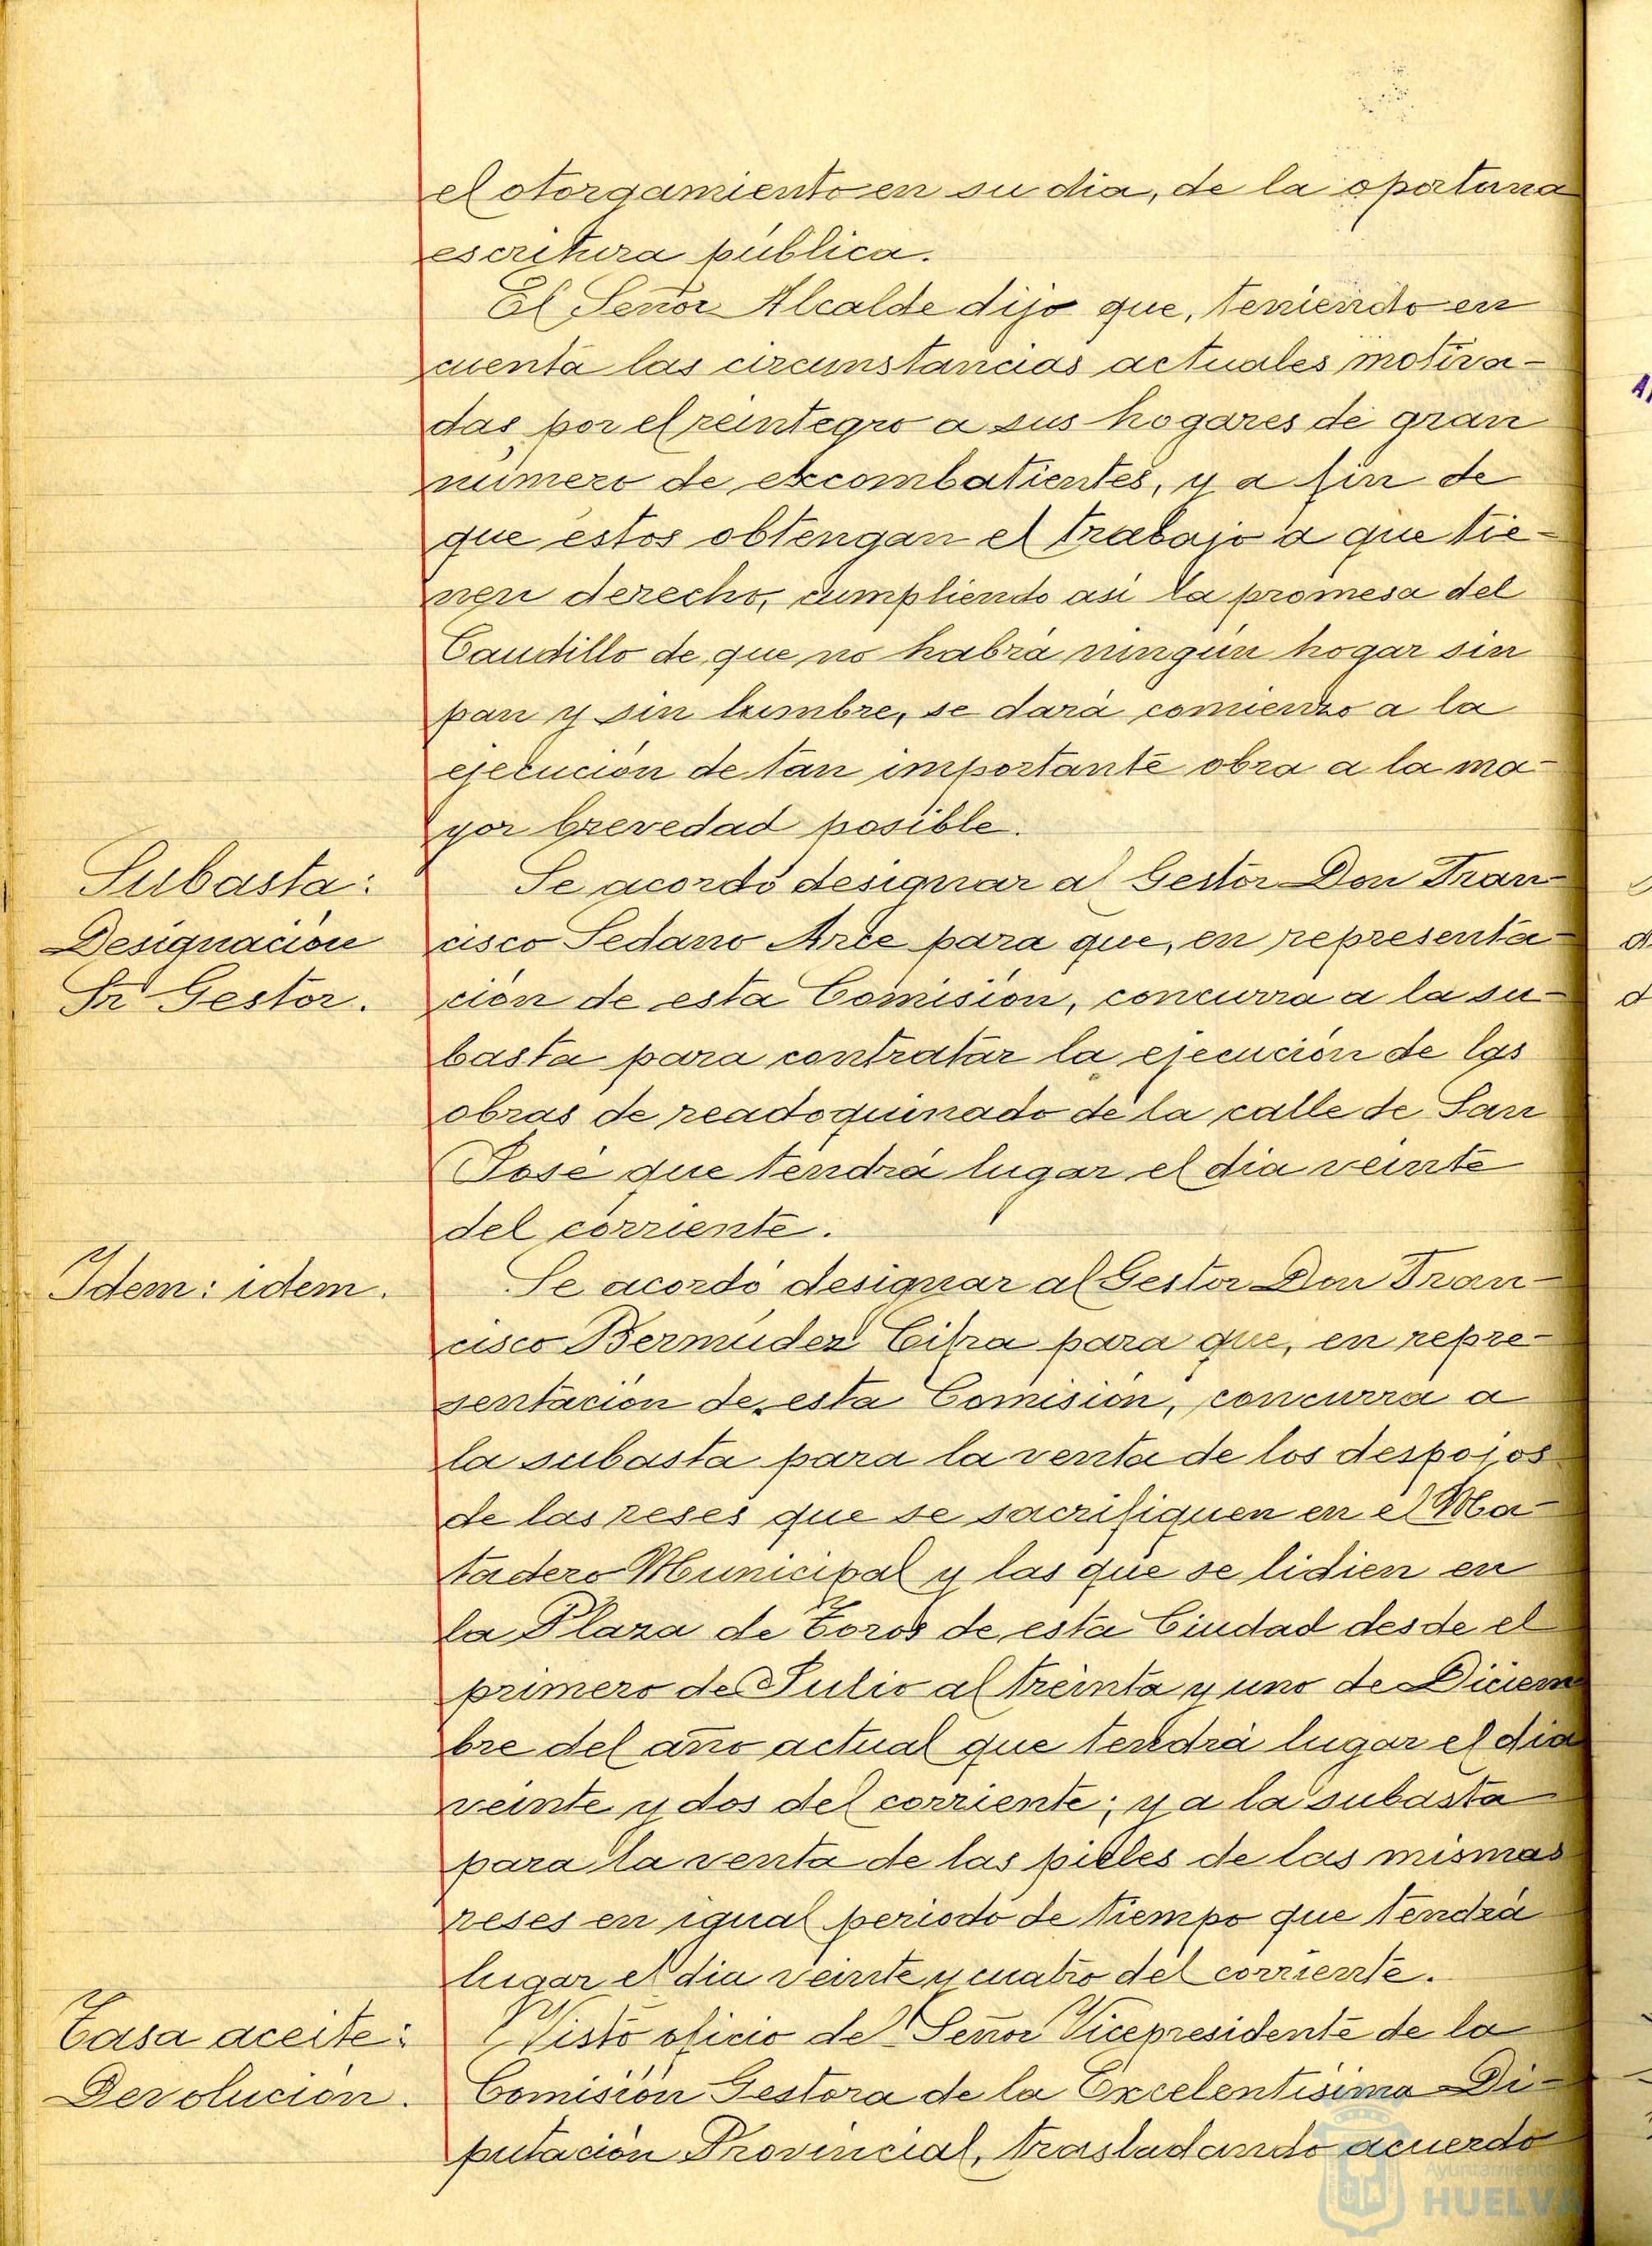 el otorgamiento en su dia, de la oportuna
escritura pública.
El Señor Alcalde dijo que, teniendo en
cuenta las circunstancias actuales motiva-
das por el reintegro a sus hogares de gran
número de excombatientes, y a fin de
que éstos obtengan el trabajo a que tie-
nen derecho, cumpliendo así la promesa del
Caudillo de que no habrá ningún hogar sin
pan y sin lumbre, se dará comienzo a la
ejecución de tan importante obra a la ma-
yor brevedad posible.
Subasta:
Designación
Sr. Gestor.
Se acordó designar al Gestor Don Fran-
cisco Sedano Arce para que, en representa-
ción de esta Comisión, concurra a la su-
basta para contratar la ejecución de las
obras de readoquinado de la calle de San
José que tendrá lugar el dia veinte
del corriente.
Idem: idem.
Se acordó designar al Gestor Don Fran-
cisco Bermúdez Cifra para que, en repre-
sentación de esta Comisión, concurra a
la subasta para la venta de los despojos
de las reses que se sacrifiquen en el Ma-
tadero Municipal y las que se lidien en
la Plaza de Toros de esta Ciudad desde el
primero de Julio al treinta y uno de Diciem
bre del año actual que tendrá lugar el dia
veinte y dos del corriente; y a la subasta
para la venta de las pieles de las mismas
reses en igual periodo de tiempo que tendrá
lugar el dia veinte y cuatro del corriente.
Tasa aceite:
Devolución.
Visto oficio del Señor Vicepresidente de la
Comisión Gestora de la Excelentísima Di-
putación Provincial, trasladando acuerdo
Ayuntamiento de
HUELVA